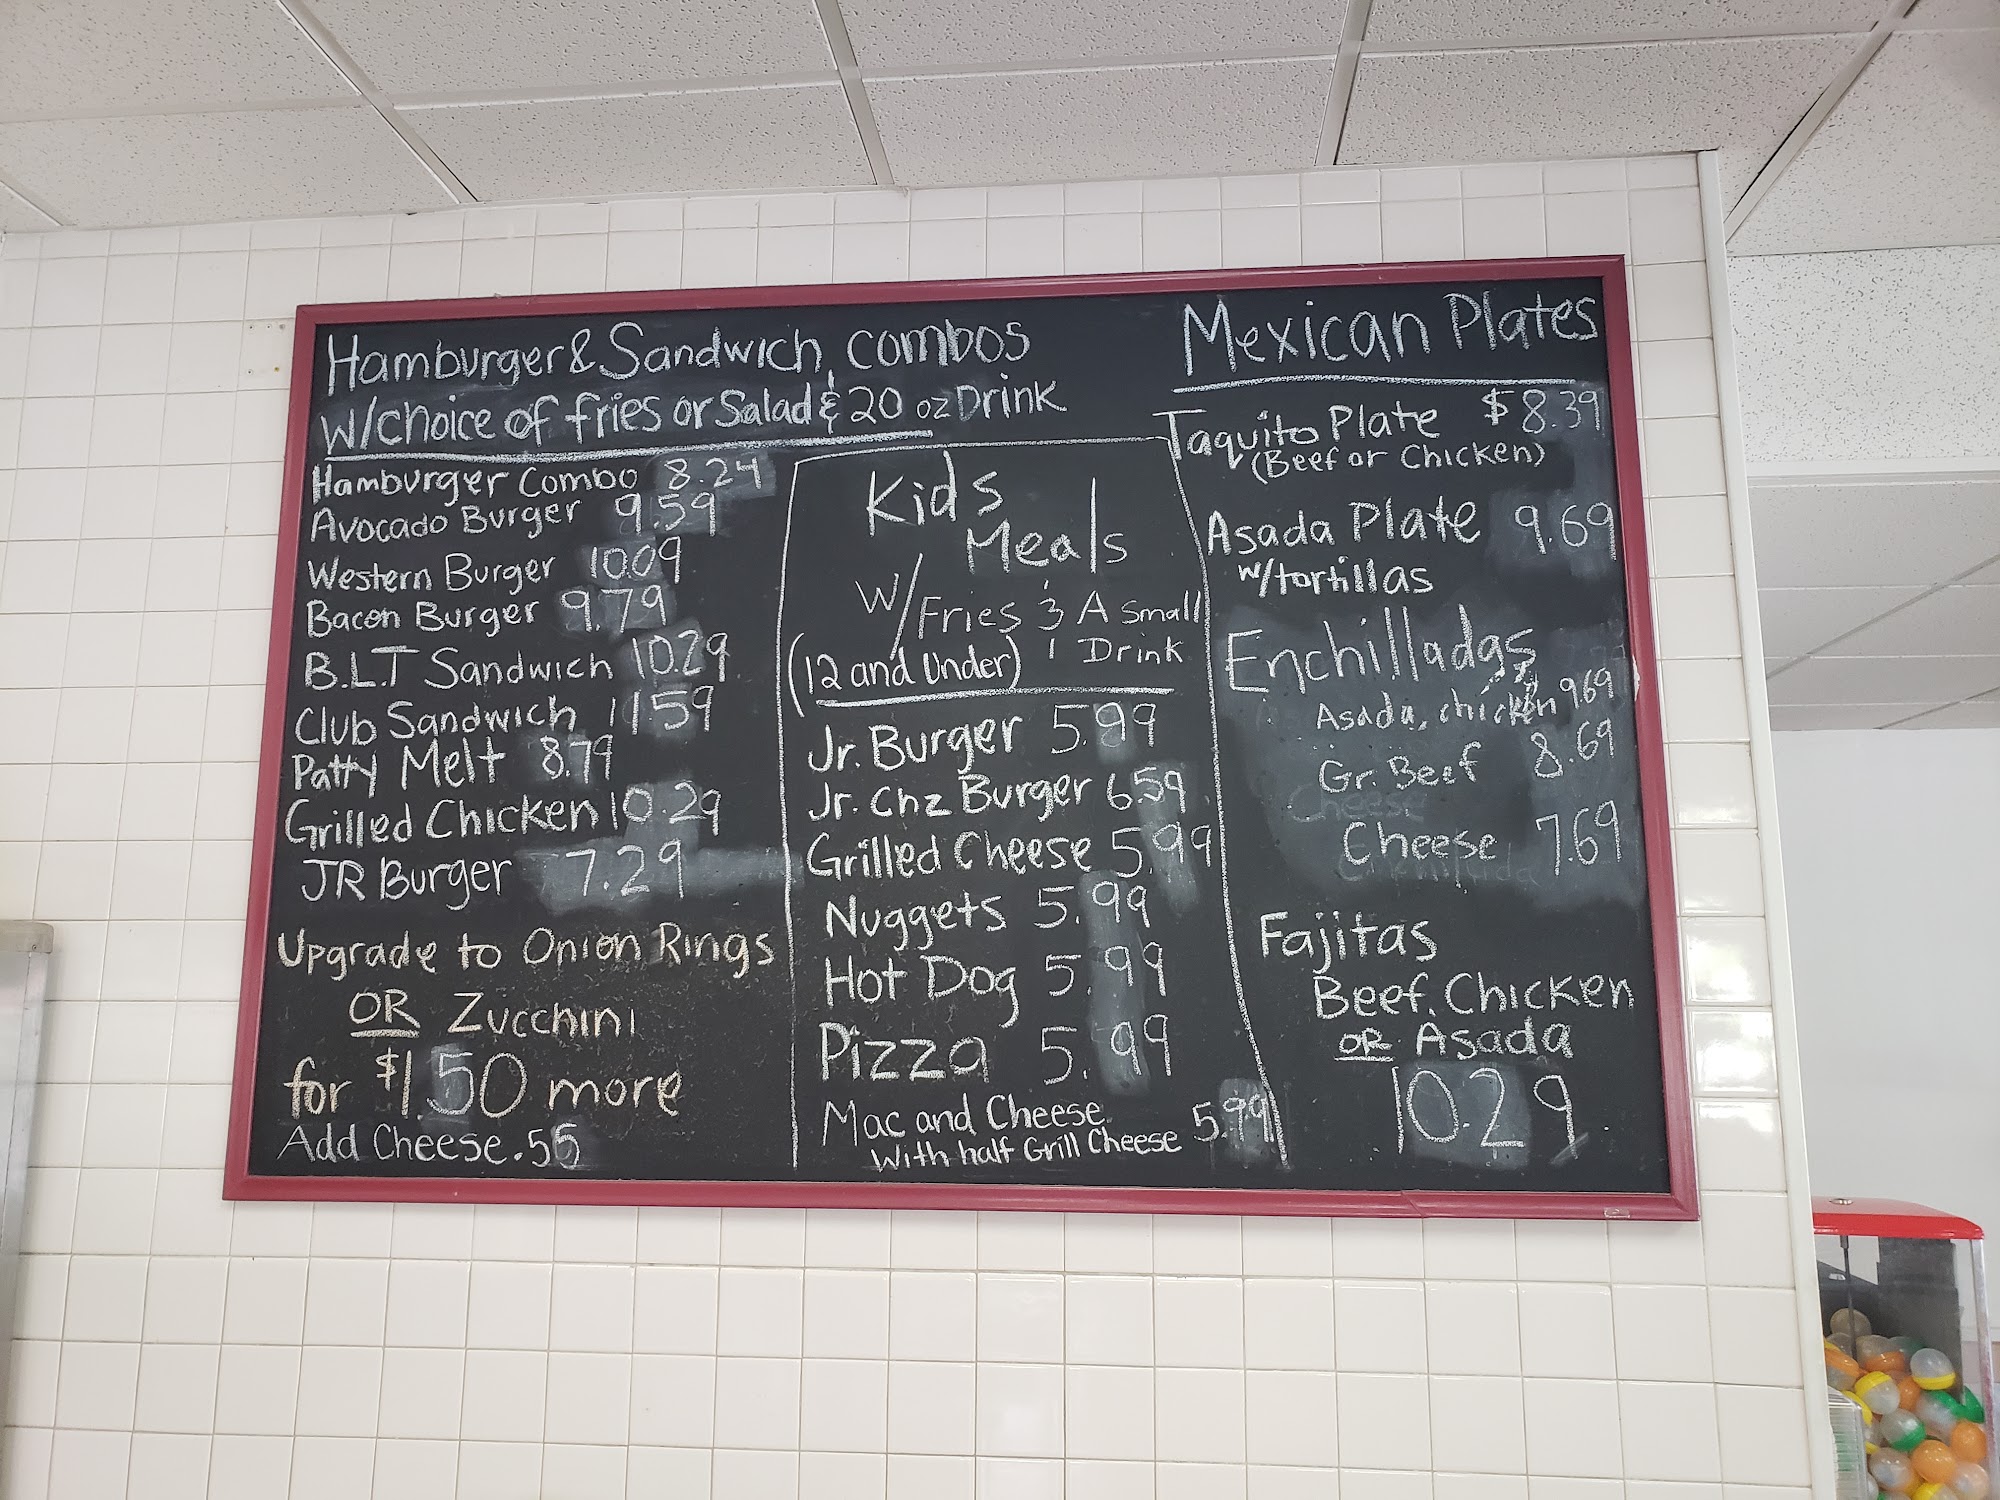 Hamburger & Sandwich combos
w/choice of fries or Salad & 20 oz Drink
Hamburger Combo 8.29
Avocado Burger 9.59
Western Burger 10.09
Bacon Burger 9.79
B.L.T Sandwich 10.29
Club Sandwich 11.59
Patty Melt 8.79
Grilled Chicken 10.29
JR Burger 7.29
Upgrade to Onion Rings
OR Zucchini
for $1.50 more
Add Cheese .55
Kids
Meals
w/Fries & A Small
(12 and Under) 1 Drink
Jr. Burger 5.99
Jr. Chz Burger 6.59
Grilled Cheese 5.99
Nuggets 5.99
Hot Dog 5.99
Pizza 5.99
Mac and Cheese 5.99
With half Grill Cheese
Mexican Plates
Taquito Plate $8.39
(Beef or Chicken)
Asada Plate 9.69
w/tortillas
Enchilladas
Asada, chicken 9.69
Gr. Beef 8.69
Cheese 7.69
Fajitas
Beef, Chicken
OR Asada
10.29